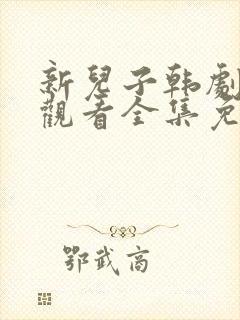 新兒子韩劇
觀看全集免
鄂武商